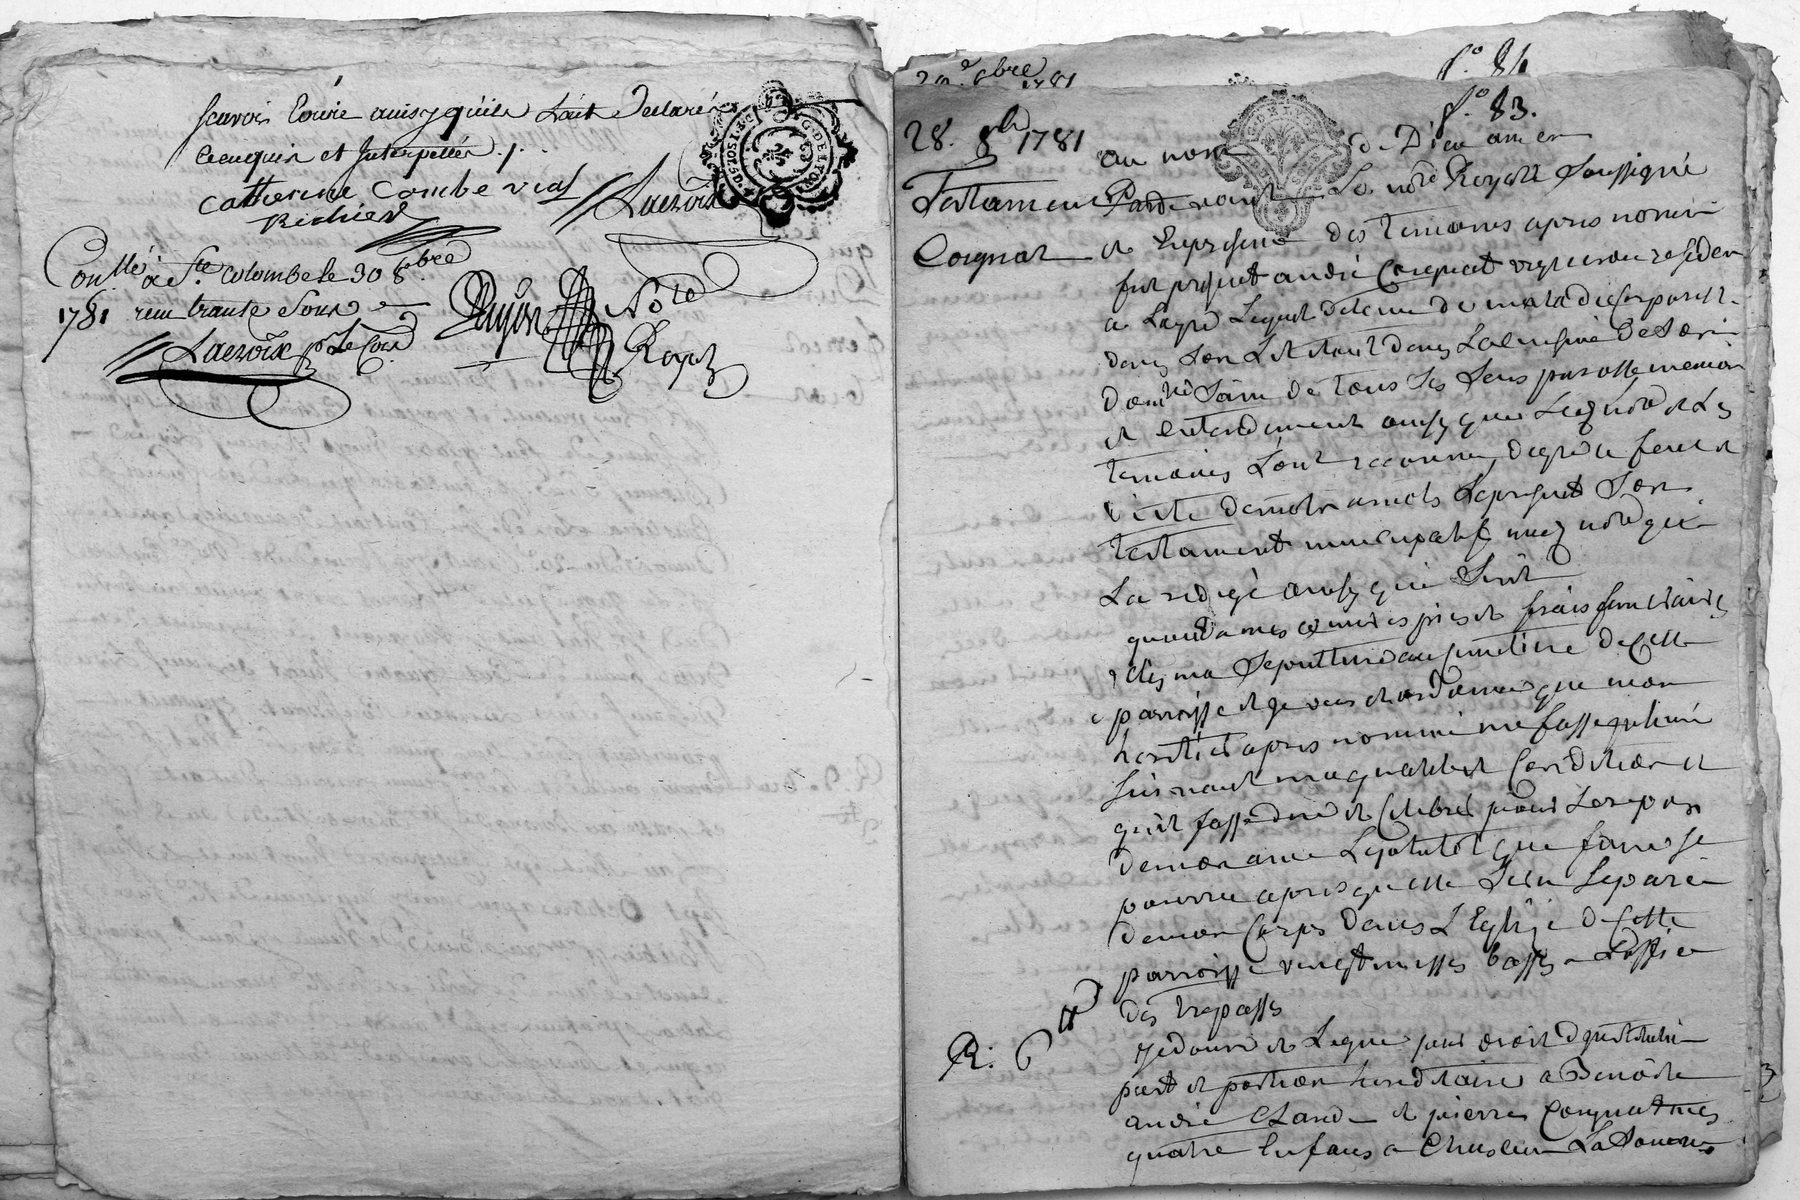 scavoir Ecrire ainsy quils L'ont Declaré
de ce enquis et Interpellés ./.
Catherine Combe vial
Richierd
Lacroix
G. DE LYON
Con.llé à Ste colombe le 30 8bre
1781 reçu trente Sous
Lacroix
Payon Nore
Royal
29e 8bre 1781
fo. 84
fo. 83.
28. 8bre 1781
Testament
Coignat
au nom de Dieu amen
Pardevant Le nore Royal Soussigné
et En presence des temoins apres nommés
fut present andré Coignat vigneron resident
a Layre Lequel detenu de maladie corporelle
dans son Lit etant dans La cuisine de son
Domlle Sain de tous ses sens parolle memoire
et entendement ainsy que Led nore et Les
temoins L'ont reconnu, de gré a fait et
dicté de mot a mots Le present son
testament nuncupatif, aud nore qui
La redigé ainsy quil Suit
quand a mes œuvres pies et frais funeraires
élis ma Sepulture au simetiere de Cette
parroisse et je veus et ordonne que mon
heritier apres nommé me fasse inhumer
Suivant ma qualité et Condition et
quil fasse dire et Celebrer pour Le repos
de mon ame Le plutot que faire se
pourra apres quelle Sera Separée
de mon Corps dans L'Eglise de Cette
parroisse vingt messes basses a L'office
des trepassés
R. 6 ₶
je donne et Legue pour droit d'institution
part et portion hereditaire a Benoite
andré Claude et pierre Coignat mes
quatre Enfans a Chascun La Somme